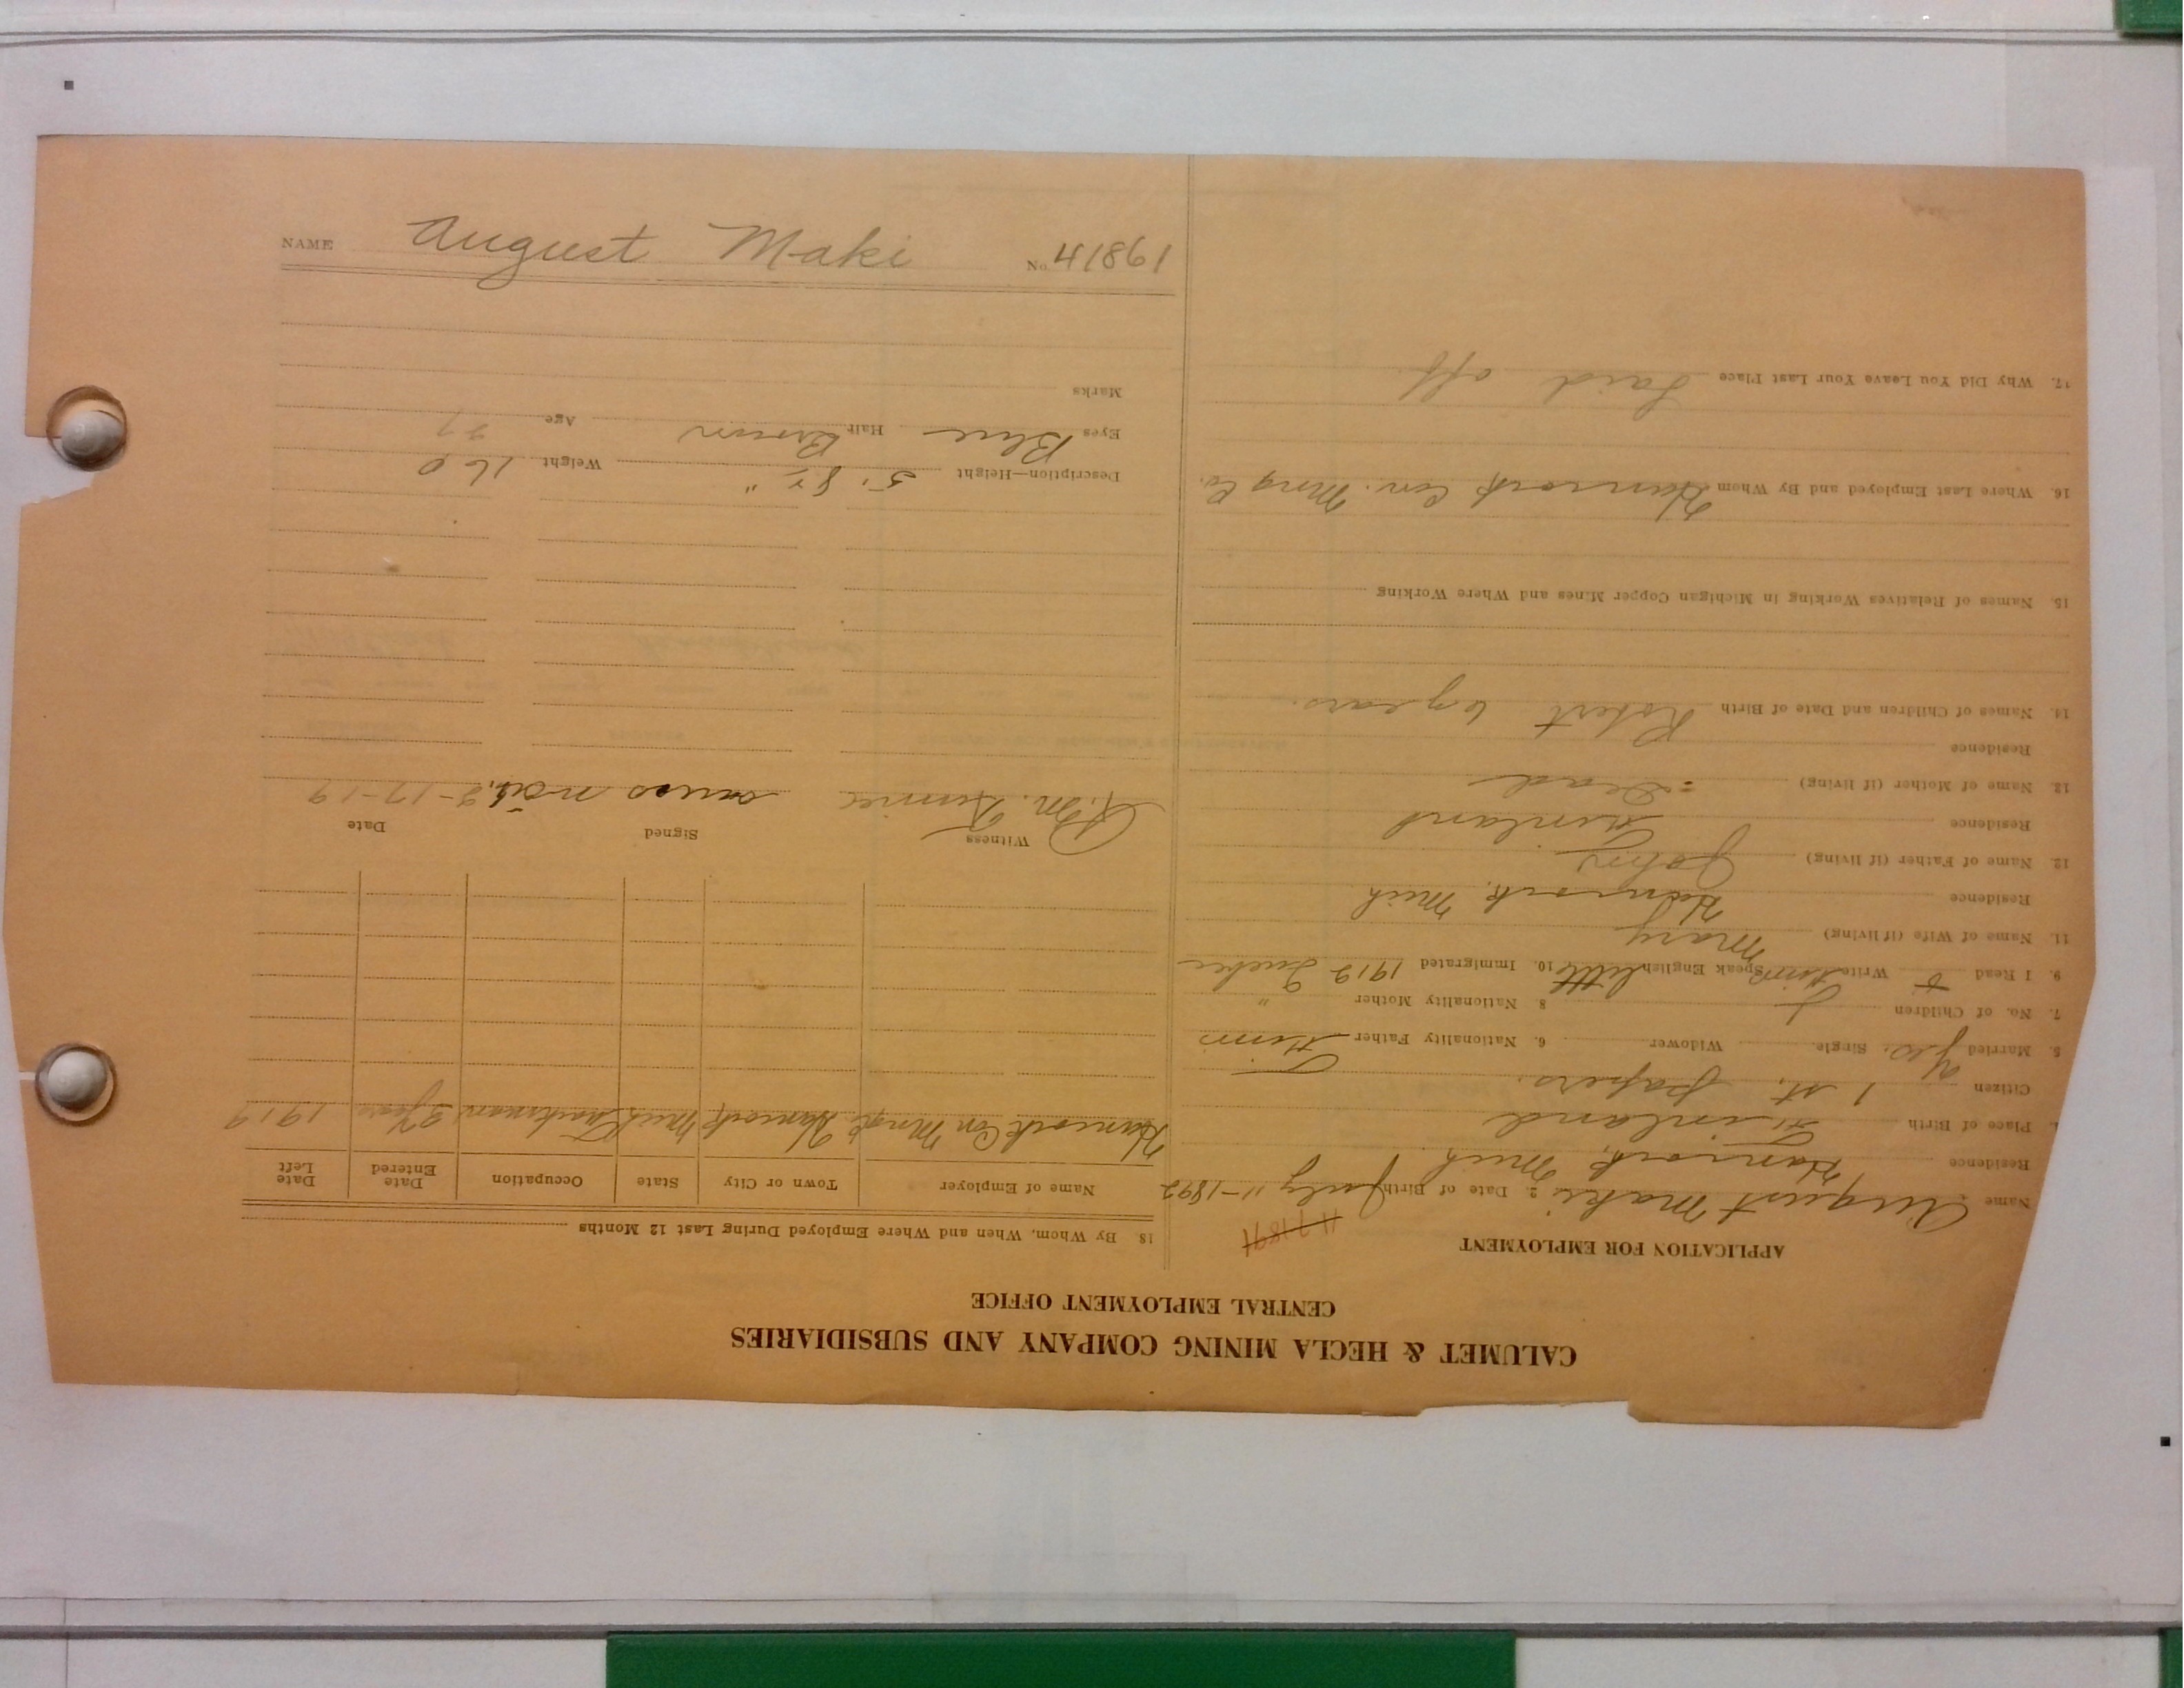 CALUMET & HECLA MINING COMPANY AND SUBSIDIARIES
CENTRAL EMPLOYMENT OFFICE
APPLICATION FOR EMPLOYMENT
11-7-1891
Name August Maki 2. Date of Birth July 11-1892
Residence Hancock, Mich
Place of Birth Finland
Citizen 1 st. papers.
5. Married Yes. Single Widower 6. Nationality Father Finn
7. No. of Children 1 8. Nationality Mother "
9. I Read & Write Finn Speak English little 10. Immigrated 1912
11. Name of Wife (if living) Mary
Residence Hancock, Mich
12. Name of Father (if living) John
Residence Finland
13. Name of Mother (if living) Dead
Residence
14. Names of Children and Date of Birth Robert 6 years.
15. Names of Relatives Working in Michigan Copper Mines and Where Working
16. Where Last Employed and By Whom Hancock Con. Mng Co.
17. Why Did You Leave Your Last Place Laid off
18. By Whom, When and Where Employed During Last 12 Months
Name of Employer Town or City State Occupation Date Entered Date Left
Hancock Con Mng Co Hancock Mich Trackman 2 Years 1919
Witness Signed Date
3-17-19
Description—Height 5' 8½" Weight 160
Eyes Blue Hair Brown Age 27
Marks
NAME August Maki No. 41861